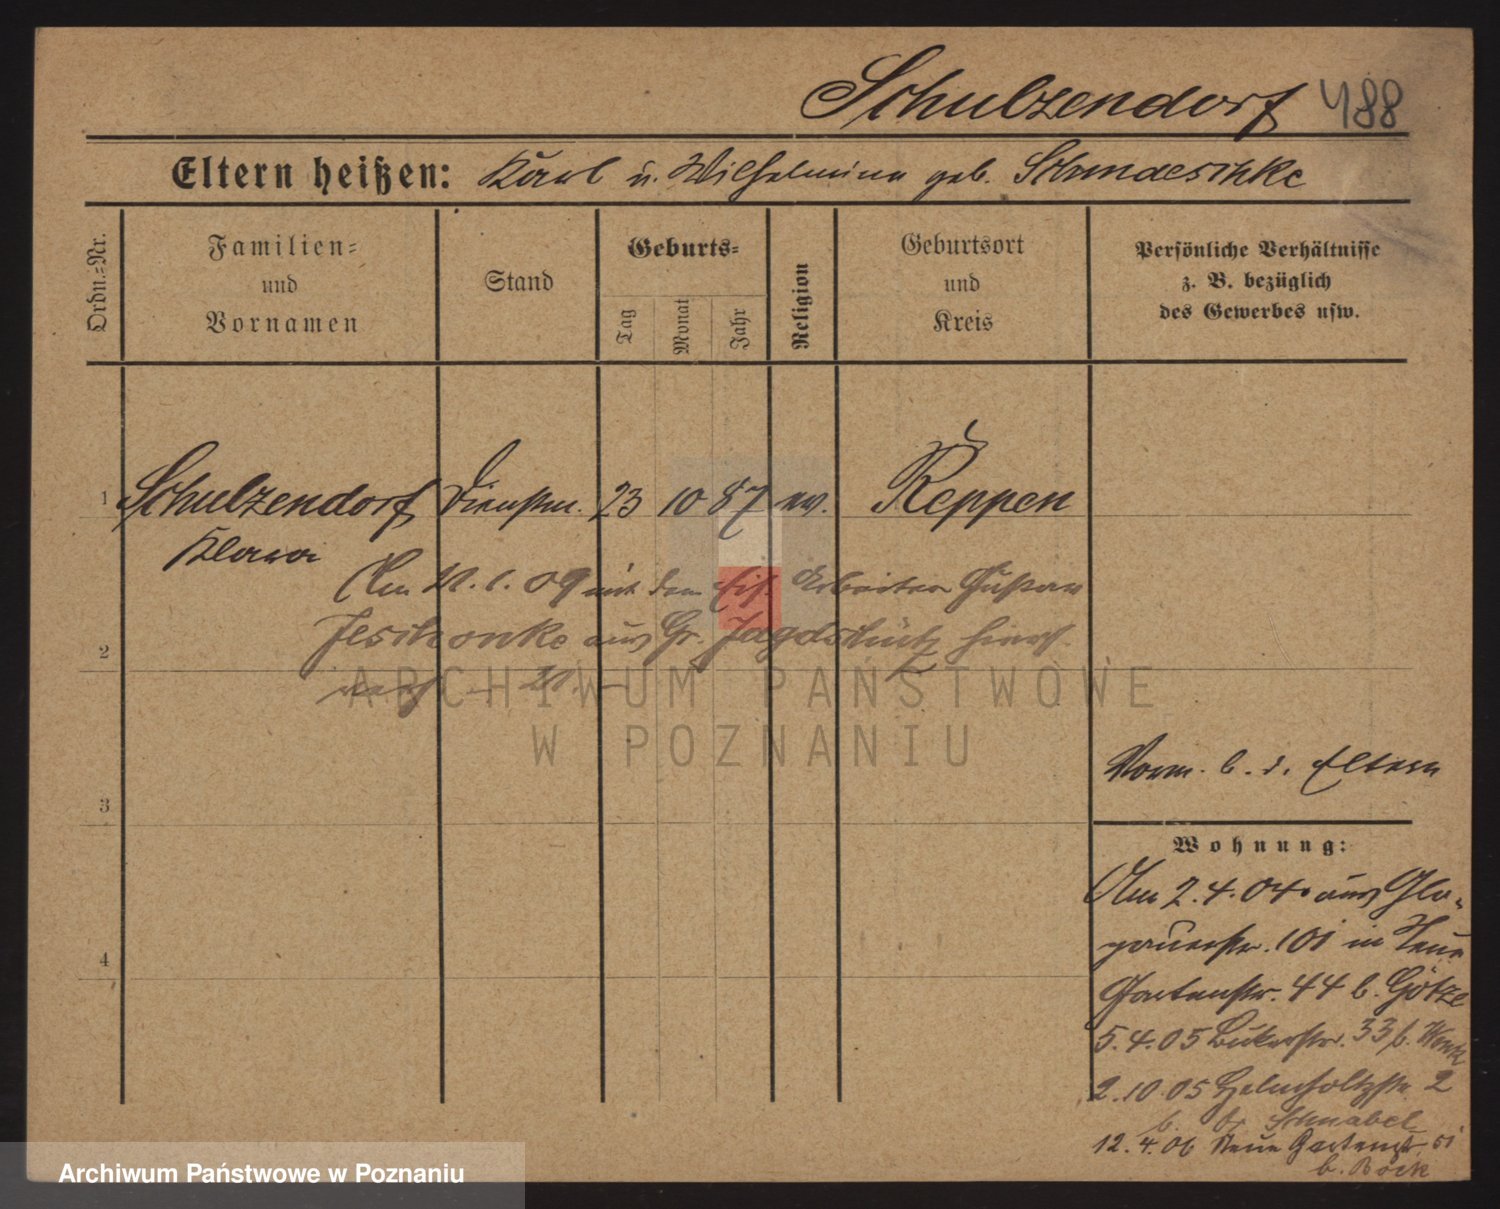 Schulzendorf 488
Eltern heißen: Karl u. Wilhelmine geb. Schmdeschke
Ordn.-Nr.
Familien-
und
Vornamen
Stand
Geburts-
Tag
Monat
Jahr
Religion
Geburtsort
und
Kreis
Persönliche Verhältnisse
z. B. bezüglich
des Gewerbes usw.
1 Schulzendorf Dienstm. 23 10 87 ev. Reppen
Klara
Am 21.1.09 mit dem Arbeiter Gustav
2 Jeschonke aus Gr. hier
ARCHIWUM PAŃSTWOWE
W POZNANIU
Vorm. b. d. Eltern
3
Wohnung:
Am 2.4.04. aus Glo-
gauerstr. 101 in Neue
4
Gartenstr. 44 b. Götze
5.4.05 Bukerstr. 33 b.
2.10.05 Helmholtzstr. 2
b. Schnabel
12.4.06 Neue Gartenstr. 51
b. Bock
Archiwum Państwowe w Poznaniu